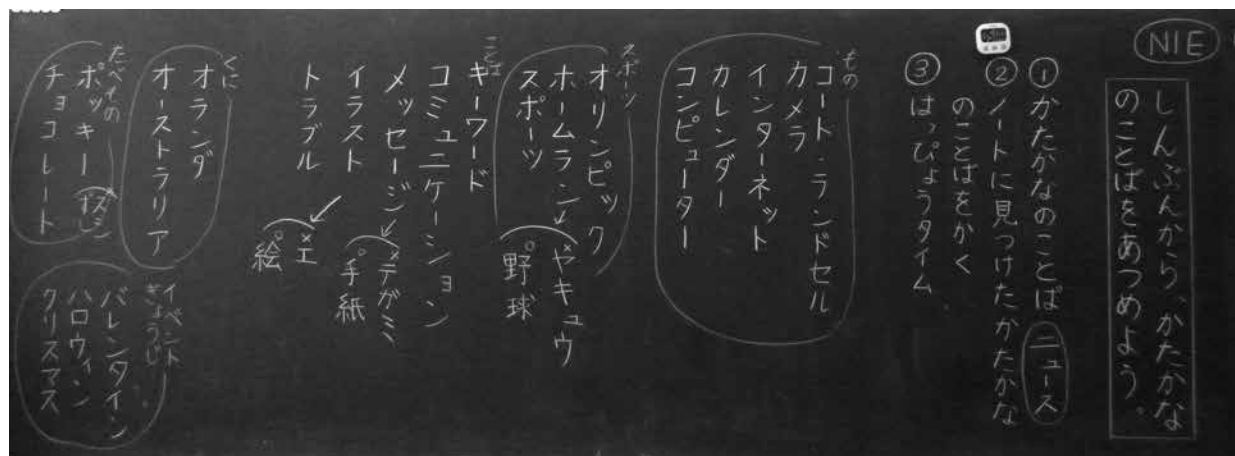 NIE
しんぶんから、かたかな
のことばをあつめよう。
①かたかなのことば ニュース
②ノートに見つけたかたかな
のことばをかく
③はっぴょうタイム
もの
コート・ランドセル
カメラ
インターネット
カレンダー
コンピューター
スポーツ
オリンピック
ホームラン ×ヤキュウ
スポーツ 。野球
ことば
キーワード
コミュニケーション
メッセージ ×テガミ
イラスト 。手紙
トラブル ×エ
。絵
くに
オランダ
オーストラリア
たべもの
ポッキー
チョコレート
イベント
ぎょうじ
バレンタイン
ハロウィン
クリスマス